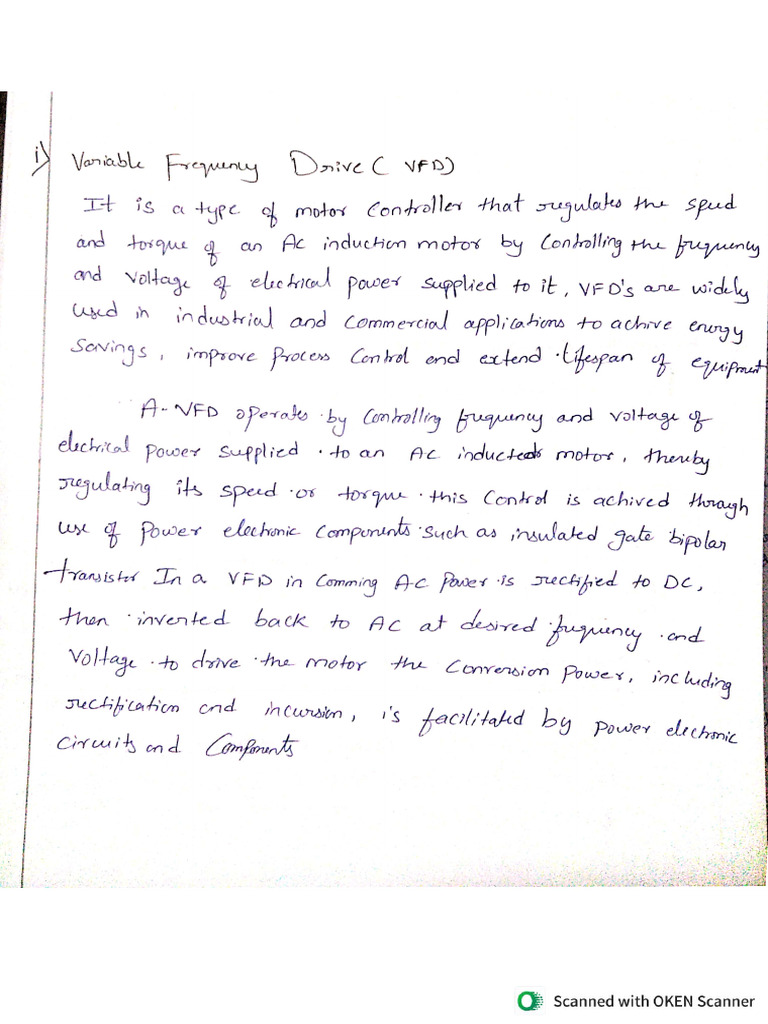 i) Variable Frequency Drive ( VFD)
It is a type of motor controller that regulates the speed
and torque of an AC induction motor by controlling the frequency
and voltage of electrical power supplied to it, VFD's are widely
used in industrial and commercial applications to achive energy
savings, improve process control and extend lifespan of equipment
A-VFD operates by controlling frequency and voltage of
electrical power supplied to an AC motor, thereby
regulating its speed or torque this control is achived through
use of power electronic components such as insulated gate bipolar
transistor In a VFD in comming AC power is rectified to DC,
then inverted back to AC at desired frequency and
voltage to drive the motor the conversion power, including
rectification and incursion, is facilitated by power electronic
circuits and components
Scanned with OKEN Scanner